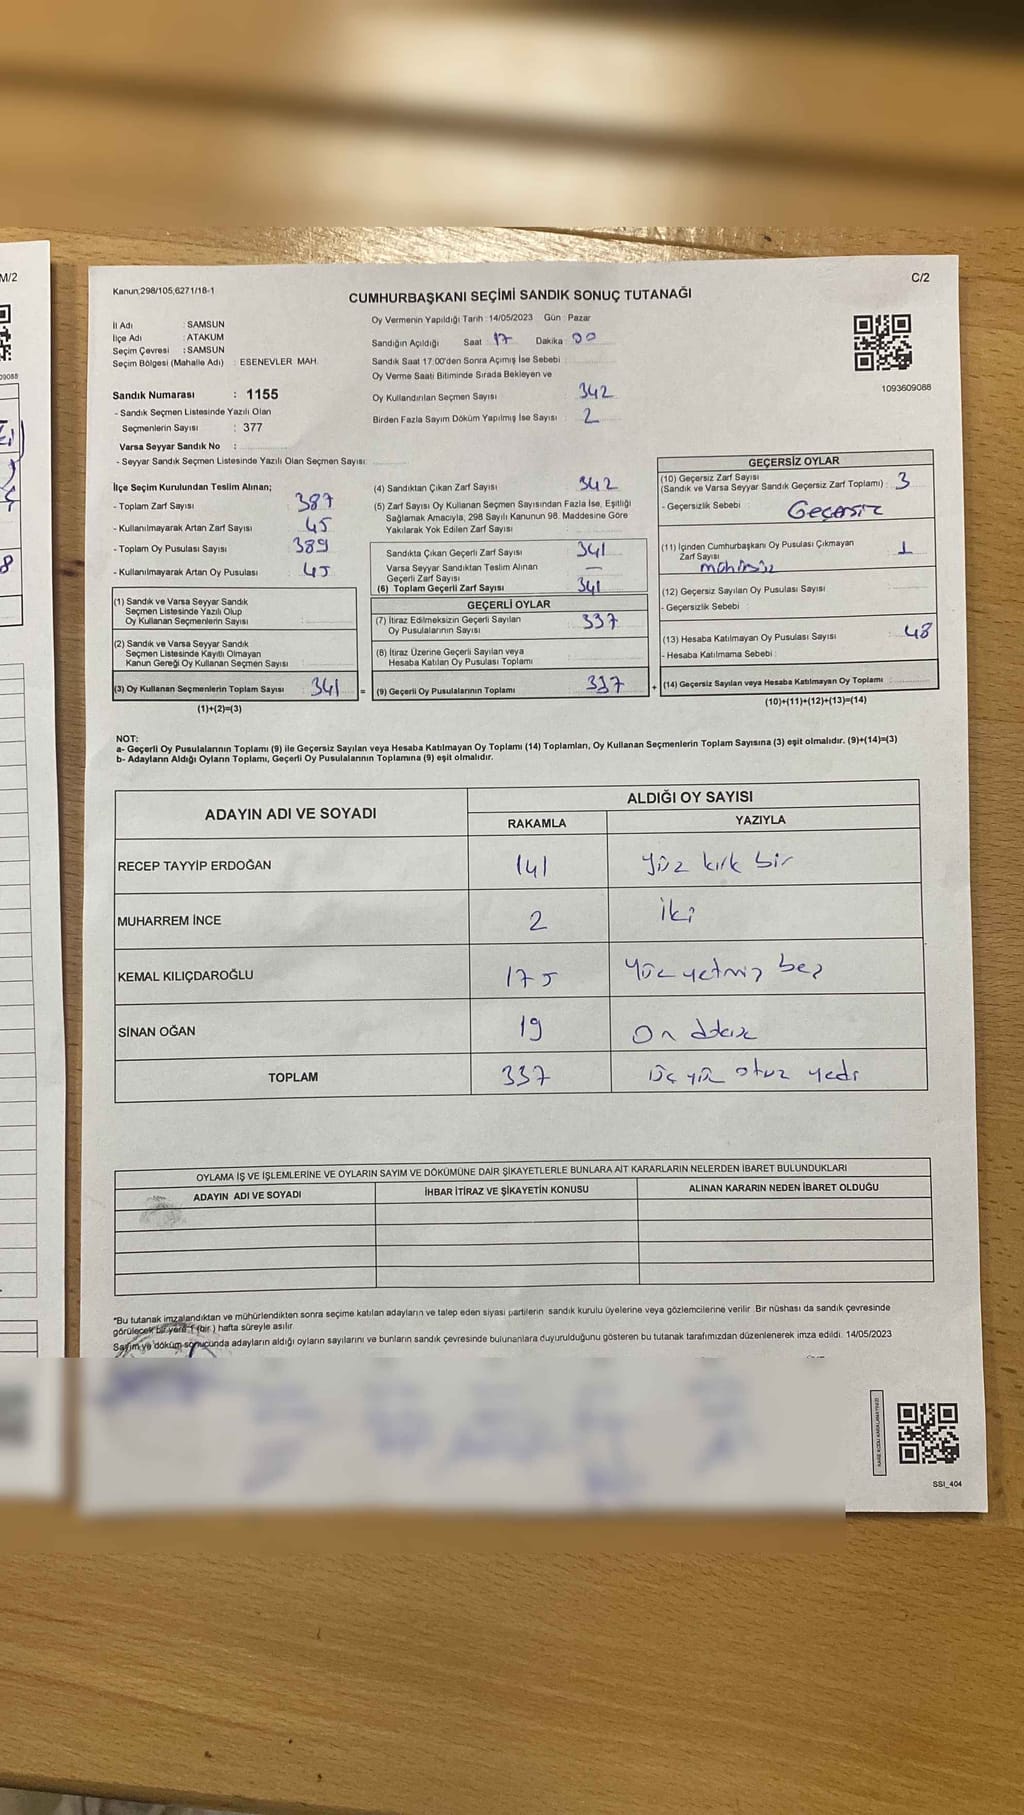 M/2
C/2
Kanun,298/105,6271/18-1
CUMHURBAŞKANI SEÇİMİ SANDIK SONUÇ TUTANAĞI
İl Adı : SAMSUN
İlçe Adı : ATAKUM
Seçim Çevresi : SAMSUN
Seçim Bölgesi (Mahalle Adı) : ESENEVLER MAH.
Sandık Numarası : 1155
- Sandık Seçmen Listesinde Yazılı Olan
Seçmenlerin Sayısı : 377
Varsa Seyyar Sandık No :
- Seyyar Sandık Seçmen Listesinde Yazılı Olan Seçmen Sayısı:
Oy Vermenin Yapıldığı Tarih :14/05/2023 Gün : Pazar
Sandığın Açıldığı Saat : 17 Dakika : 00
Sandık Saat 17:00'den Sonra Açımış İse Sebebi :
Oy Verme Saati Bitiminde Sırada Bekleyen ve
Oy Kullandırılan Seçmen Sayısı 342
Birden Fazla Sayım Döküm Yapılmış İse Sayısı : 2
1093609088
İlçe Seçim Kurulundan Teslim Alınan;
- Toplam Zarf Sayısı : 387
- Kullanılmayarak Artan Zarf Sayısı : 45
- Toplam Oy Pusulası Sayısı : 389
- Kullanılmayarak Artan Oy Pusulası : 45
(1) Sandık ve Varsa Seyyar Sandık
Seçmen Listesinde Yazılı Olup
Oy Kullanan Seçmenlerin Sayısı :
(2) Sandık ve Varsa Seyyar Sandık
Seçmen Listesinde Kayıtlı Olmayan
Kanun Gereği Oy Kullanan Seçmen Sayısı :
(3) Oy Kullanan Seçmenlerin Toplam Sayısı : 341 =
(1)+(2)=(3)
(4) Sandıktan Çıkan Zarf Sayısı : 342
(5) Zarf Sayısı Oy Kullanan Seçmen Sayısından Fazla İse, Eşitliği
Sağlamak Amacıyla, 298 Sayılı Kanunun 98. Maddesine Göre
Yakılarak Yok Edilen Zarf Sayısı :
Sandıkta Çıkan Geçerli Zarf Sayısı : 341
Varsa Seyyar Sandıktan Teslim Alınan
Geçerli Zarf Sayısı : —
(6) Toplam Geçerli Zarf Sayısı : 341
GEÇERLİ OYLAR
(7) İtiraz Edilmeksizin Geçerli Sayılan
Oy Pusulalarının Sayısı : 337
(8) İtiraz Üzerine Geçerli Sayılan veya
Hesaba Katılan Oy Pusulası Toplamı :
(9) Geçerli Oy Pusulalarının Toplamı : 337 +
GEÇERSİZ OYLAR
(10) Geçersiz Zarf Sayısı
(Sandık ve Varsa Seyyar Sandık Geçersiz Zarf Toplamı) : 3
- Geçersizlik Sebebi : Geçersiz
(11) İçinden Cumhurbaşkanı Oy Pusulası Çıkmayan
Zarf Sayısı : 1
mühürsüz
(12) Geçersiz Sayılan Oy Pusulası Sayısı :
- Geçersizlik Sebebi :
(13) Hesaba Katılmayan Oy Pusulası Sayısı : 48
- Hesaba Katılmama Sebebi :
(14) Geçersiz Sayılan veya Hesaba Katılmayan Oy Toplamı :
(10)+(11)+(12)+(13)=(14)
NOT:
a- Geçerli Oy Pusulalarının Toplamı (9) ile Geçersiz Sayılan veya Hesaba Katılmayan Oy Toplamı (14) Toplamları, Oy Kullanan Seçmenlerin Toplam Sayısına (3) eşit olmalıdır. (9)+(14)=(3)
b- Adayların Aldığı Oyların Toplamı, Geçerli Oy Pusulalarının Toplamına (9) eşit olmalıdır.
ADAYIN ADI VE SOYADI
ALDIĞI OY SAYISI
RAKAMLA YAZIYLA
RECEP TAYYİP ERDOĞAN 141 Yüz kırk bir
MUHARREM İNCE 2 İki
KEMAL KILIÇDAROĞLU 175 Yüz yetmiş beş
SİNAN OĞAN 19 On dokuz
TOPLAM 337 üç yüz otuz yedi
OYLAMA İŞ VE İŞLEMLERİNE VE OYLARIN SAYIM VE DÖKÜMÜNE DAİR ŞİKAYETLERLE BUNLARA AİT KARARLARIN NELERDEN İBARET BULUNDUKLARI
ADAYIN ADI VE SOYADI İHBAR İTİRAZ VE ŞİKAYETİN KONUSU ALINAN KARARIN NEDEN İBARET OLDUĞU
*Bu tutanak imzalandıktan ve mühürlendikten sonra seçime katılan adayların ve talep eden siyasi partilerin sandık kurulu üyelerine veya gözlemcilerine verilir. Bir nüshası da sandık çevresinde
görülecek bir yere 1 (bir ) hafta süreyle asılır.
Sayım ve döküm sonucunda adayların aldığı oyların sayılarını ve bunların sandık çevresinde bulunanlara duyurulduğunu gösteren bu tutanak tarafımızdan düzenlenerek imza edildi. 14/05/2023
KARE KODU KARALAMAYINIZ!
SSI_404